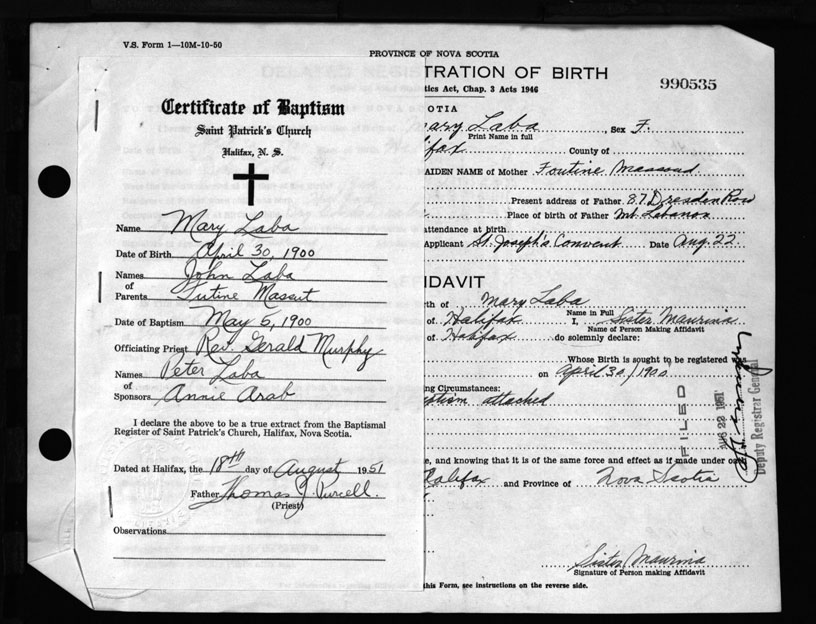 V.S. Form 1—10M-10-50
PROVINCE OF NOVA SCOTIA
Certificate of Baptism
Saint Patrick's Church
Halifax, N. S.
Name Mary Laba
Date of Birth April 30, 1900
Names John Laba
of
Parents Tutine Massut
Date of Baptism May 5, 1900
Officiating Priest Rev. Gerald Murphy
Names Peter Laba
of
Sponsors Annie Arab
I declare the above to be a true extract from the Baptismal
Register of Saint Patrick's Church, Halifax, Nova Scotia.
Dated at Halifax, the 18th day of August 1951
Father Thomas J. Purcell.
(Priest)
Observations
TRATION OF BIRTH
990535
tics Act, Chap. 3 Acts 1946
OTIA
ary Laba, Sex F.
Print Name in full
ifax County of
AIDEN NAME of Mother Foutine Massoud
Present address of Father 87 Dresden Row
Place of birth of Father Mt. Lebanon
attendance at birth
Applicant St. Joseph's Convent Date Aug. 22
FIDAVIT
rth of Mary Laba
Name in Full
of Halifax I, Sister Maurina
Name of Person Making Affidavit
of Halifax do solemnly declare:
Whose Birth is sought to be registered
on April 30/1900
ng Circumstances:
ptism attached
e, and knowing that it is of the same force and effect as if made under oa
Halifax and Province of Nova Scotia
Sister Maurina
Signature of Person making Affidavit
this Form, see instructions on the reverse side.
FILED
AUG 22 1951
Deputy Registrar General